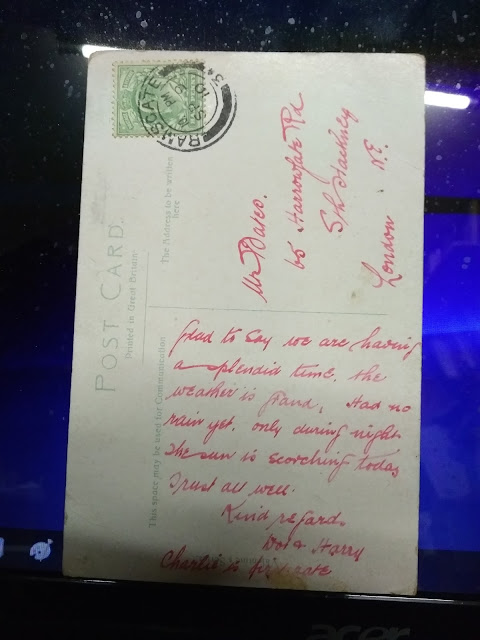 POST CARD.
Printed in Great Britain
This space may be used for Communication
The Address to be written
here
RAMSGATE
Mr Bareo.
65 Harrowgate Rd
Sth Hackney
London N.E.
Glad to say we are having
a splendid time. the
weather is grand, Had no
rain yet, only during night
The sun is scorching today
Trust all well.
Kind regards
Dot & Harry
Charlie is
acer